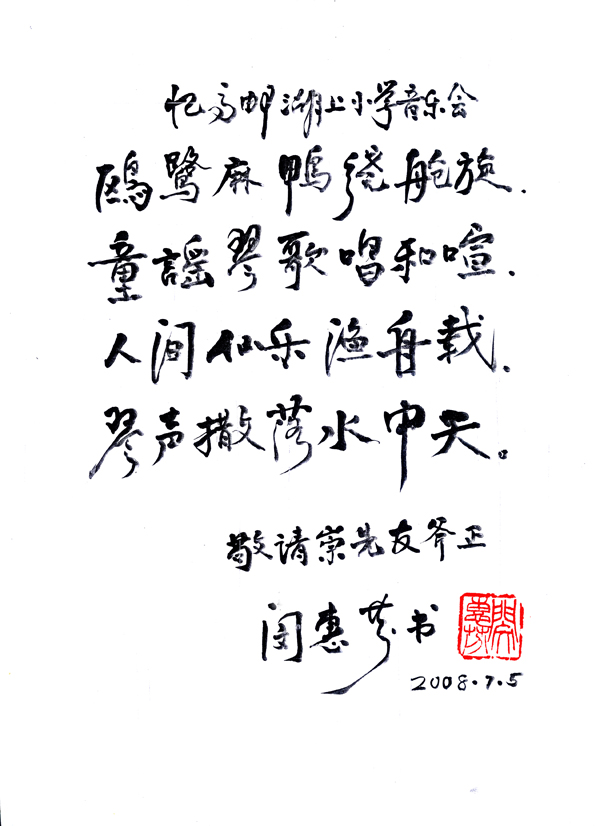 忆高邮湖上小学音乐会
鸥鹭麻鸭绕舱旋.
童謡琴歌唱和喧.
人间仙乐渔舟载.
琴声撒落水中天。
敬请崇先友斧正
闵惠芬书
2008.7.5